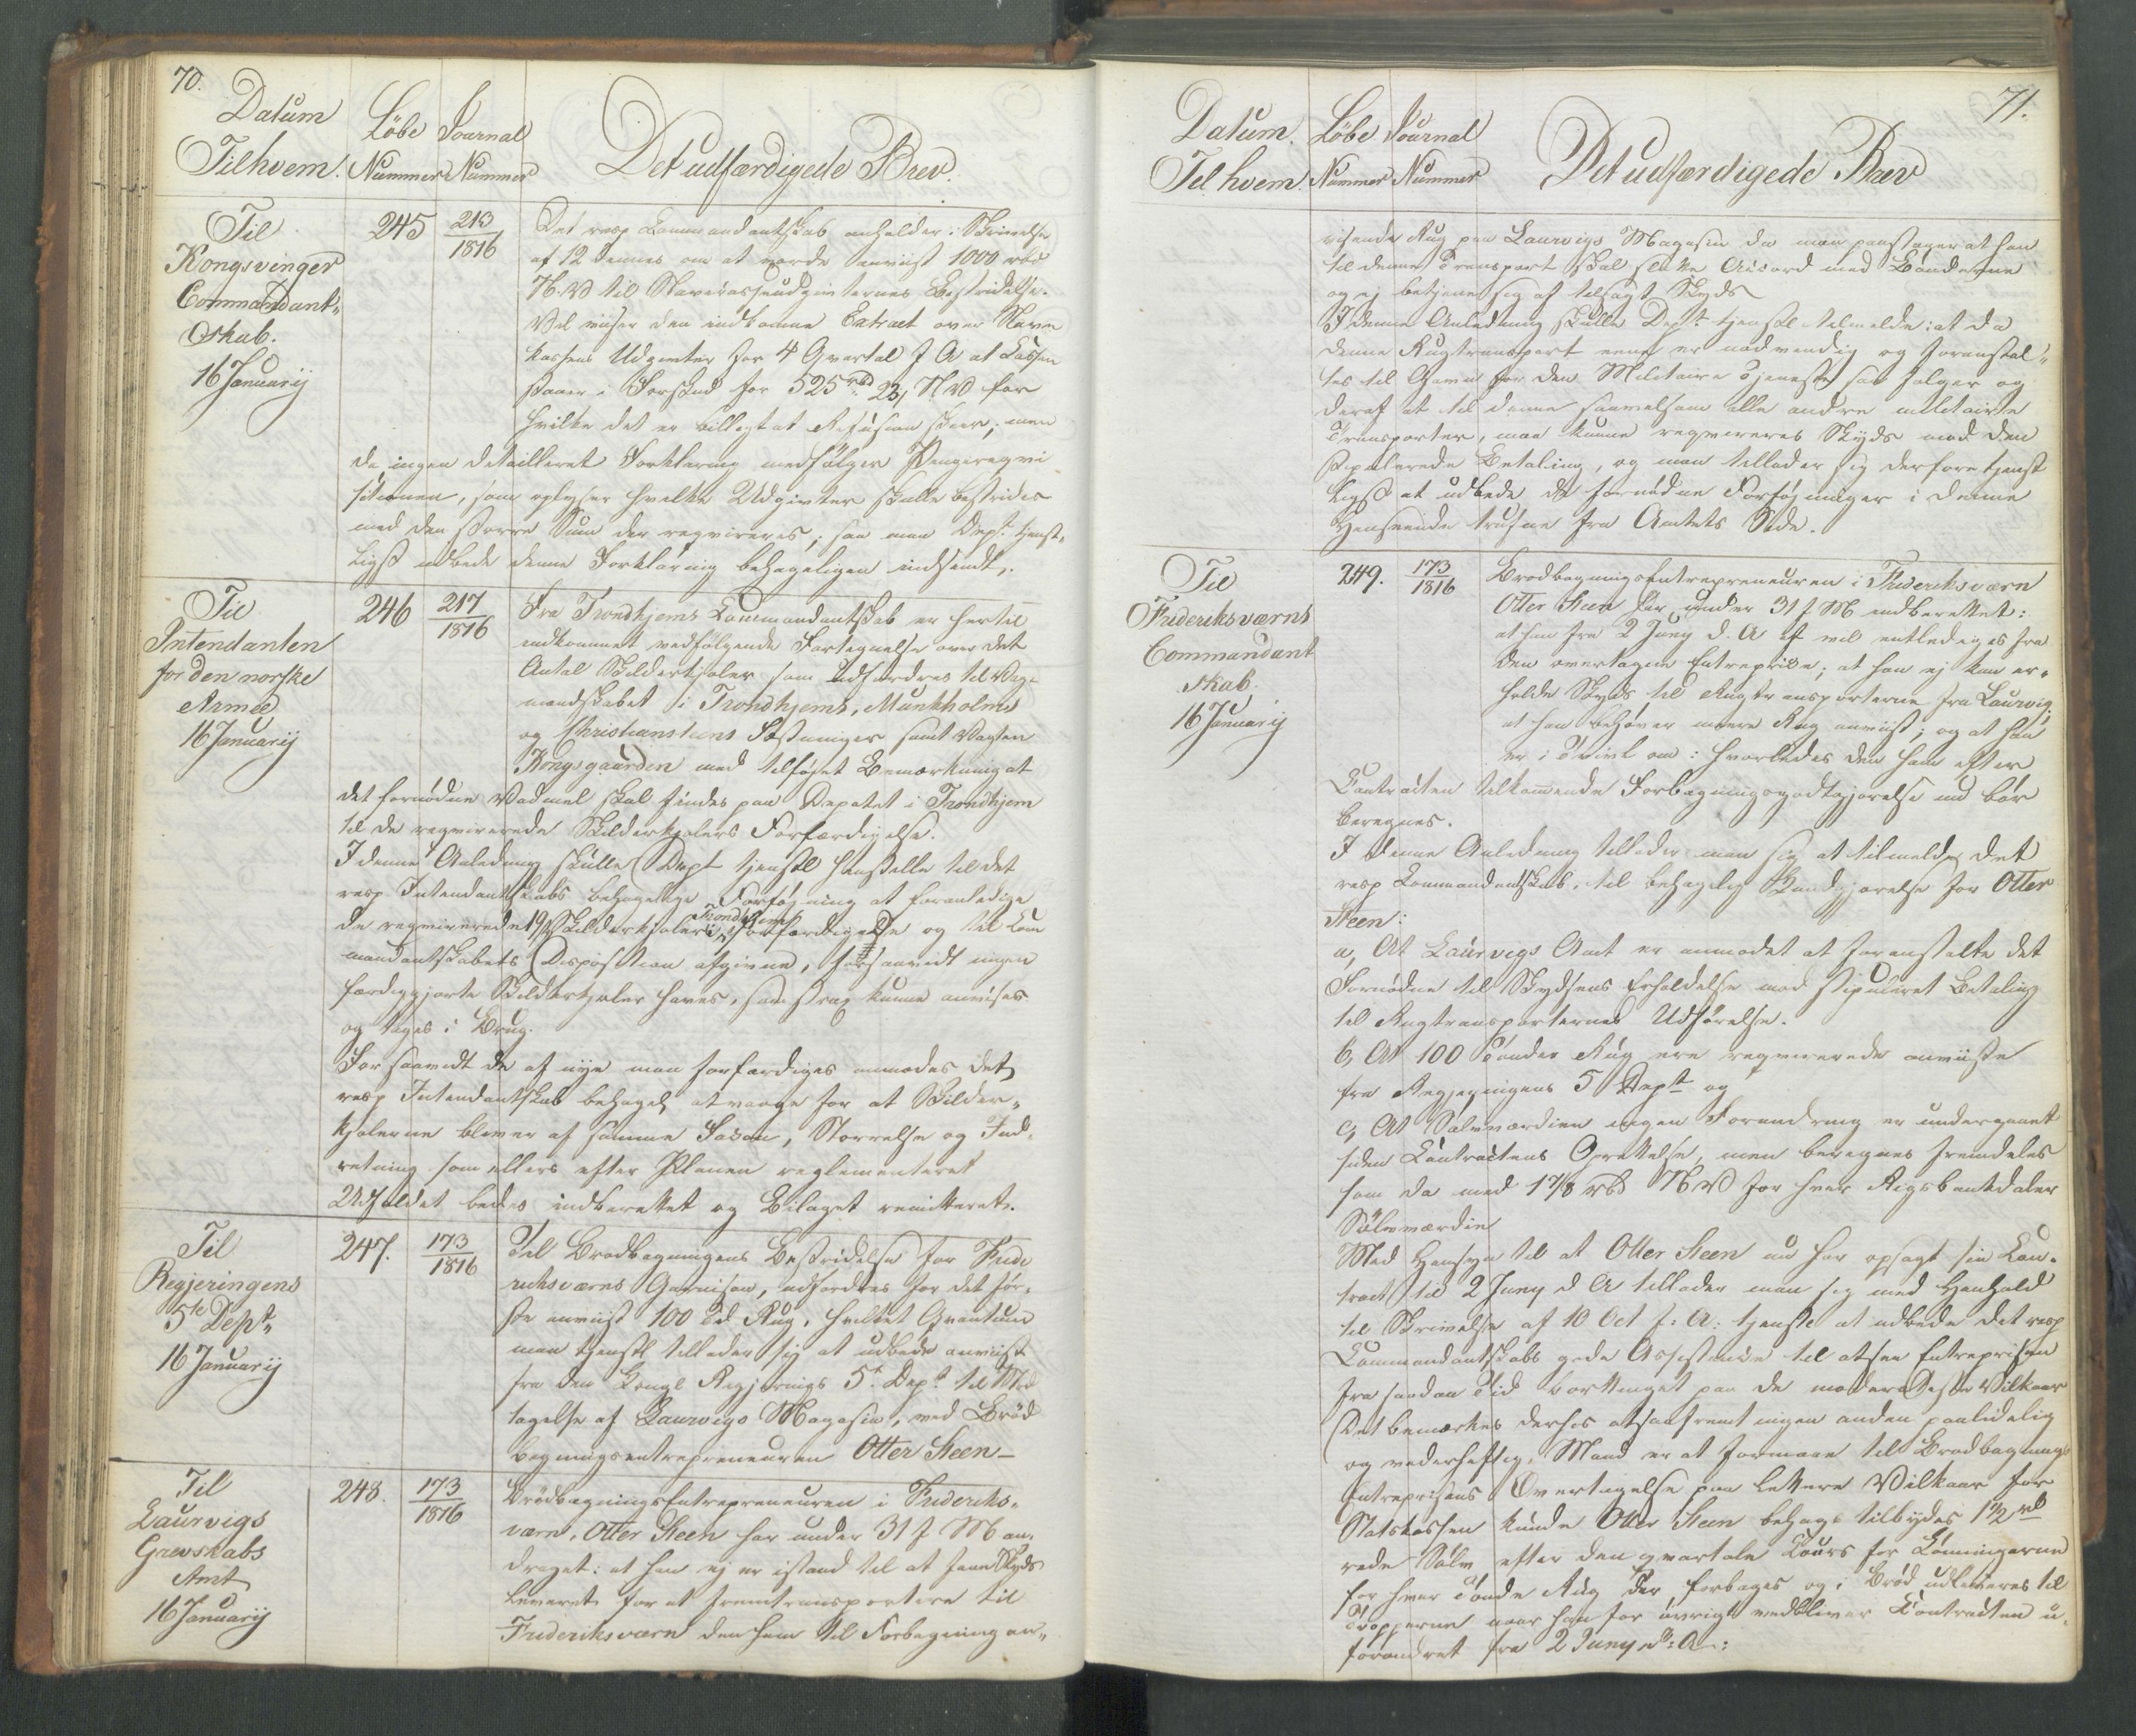 70.
Datum Tilhvem.
Löbe Nummer
Journal Nummer
Det udfærdigede Brev.
Til
Kongsvinger
Commandant-
skab.
16 Januarij
245
213
1816
Det resp Commandantskab anholder i Skrivelse
af 12 dennes om at vorde anviist 1000 rbd
N.V til Slavecasseudgivternes Bestridelse.
Vel viiser den indkomne Extract over Slave
kassens Udgivter for 4 Qvartal f A at Cassen
staaer i Forskud for 525 rbd 23 s N V for
hvilke det er billigt at Refusion skeer; men
da ingen detailleret Forklaring medfølger Pengereqvi
sitionen, som oplyser hvilke Udgivter skulle bestrides
med den større Sum der reqvireres; saa maa Dept. tjenst-
ligst udbede denne Forklaring behageligen indsendt.
Til
Intendanten
for den norske
Armee
16 Januarij
246
217
1816
Fra Trondhjems Commandantskab er hertil
indkommet vedfølgende Fortegnelse over det
Antal Skilderkjoler som udfordres til Vagt
mandskabet i Trondhjems, Munkholms
og Christianstens Fæstninger samt Vagten
Kongsgaarden med tilføjet Bemærkning at
det fornødne Vadmel skal findes paa Depotet i Trondhjem
til de reqvirerede Skilderkjolers Forfærdigelse.
I denne Anledning skulle Dept tjenstl henstille til det
resp Intendantskabs behagelige Forføjning at foranledige
de reqvirerede 19 Skilderkjoler i Trondhjem forfærdigede og til Com
mandantskabets Disposition afgivne, forsaavidt ingen
færdiggjorte Skilderkjoler haves, som strax kunne anvises
og tages i Brug.
For saavidt de af nye maa forfærdiges anmodes det
resp Intendantskab behagel at vaage for at Skilder-
kjolerne bliver af samme Facon, Størrelse og Ind-
retning som ellers efter Planen reglementeret
Udfaldet bedes indberettet og Bilaget remitteret.
Til
Regjeringens
5te Dept.
16 Januarij
247.
173
1816
Til Brødbagningens Bestridelse for Fride
riksværns Garnison, udfordres for det før-
ste anviist 100 Td Rug, hvilket Qvantum
man tjenstl tillader sig at udbede anviist
fra den Kongl Regjerings 5t Dept. til Mod
tagelse af Laurvigs Magasin, ved Brød
bagningsentrepreneuren Otter Steen –
Til
Laurvigs
Grevskabs
Amt
16 Januarij
248.
173
1816
Brødbagnings Entrepreneuren i Frideriks-
værn, Otter Steen har under 31 f M an-
draget: at han ej er istand til at faae Skyds
leveret for at fremtransportere til
Frideriksværn den ham til Forbagning an-
71.
Datum. Til hvem.
Löbe Nummer
Journal Nummer
Det udfærdigede Brev
visende Rug paa Laurvigs Magasin da man paastaaer at han
til denne Transport skal slutte Accord med Bønderne
og ej betjene sig af tilsagt Skyds
I denne Anledning skulle Dept. tjenstl tilmelde: at da
denne Rugtransport een er nødvendig og foranstal-
tes til Gavn for den Militaire Tjeneste saa følger og
deraf at til denne saavelsom alle andre militaire
Transporter, maa kunne reqvireres Skyds mod den
stipulerede Betaling, og man tillader sig derfore tjenst
ligst at udbede de fornødne Forføjninger i denne
Henseende trufne fra Amtets Side.
Til
Frideriksværns
Commandant
skab.
16 Januarij
249.
173
1816
Brødbagnings Entrepreneuren i Frideriksværn
Otter Steen har under 31 f M indberettet:
at han fra 2 Juny d. A vil entlediges fra
den overtagne Entreprise; at han ej kan er-
holde Skyds til Rugtransporterne fra Laurvig,
at han behøver meere Rug anviist; og at han
er i Tvivl om: hvorledes den ham efter
Contracten tilkommende Forbagningsgodtgjørelse nu bør
beregnes.
I denne Anledning tillader man sig at tilmelde det
resp Commandantskab, til behagelig Kundgjørelse for Otter
Steen:
a, At Laurvigs Amt er anmodet at foranstalte det
Fornødne til Skydsens Erholdelse mod stipuleret Betaling
til Rugtransporternes Udførelse.
b, At 100 Tønder Rug ere reqvirerede anviiste
fra Regjeringens 5 Dept og
c, At Sølvværdien ingen Forandring er undergaaet
siden Contractens Oprettelse, men beregnes fremdeles
som da med 1 7/8 rbd N V for hver Rigsbankdaler
Sølvværdie
Med Hensyn til at Otter Steen nu har opsagt sin Con-
tract til 2 Juny d A tillader man sig med Henhold
til Skrivelse af 10 Oct f: A: tjenstl at udbede det resp
Commandantskabs gode Assistence til at see Entreprisen
fra saadan Tid bortlinget paa de moderateste Vilkaar
Det bemærkes derhos at saafremt ingen anden paalidelig
og vederheftig Mand er at formaae til Brødbagnings
Entreprisens Overtagelse paa lettere Vilkaar for
Statskassen kunde Otter Steen behagl tilbydes 1 1/2 rbd
rede Sølv efter den qvartale Cours for Lønningerne
for hver Tønde Rug der forbages og i Brød udleveres til
Tropperne naar han for øvrigt vedbliver Contracten u-
forandret fra 2 Juny d: A: